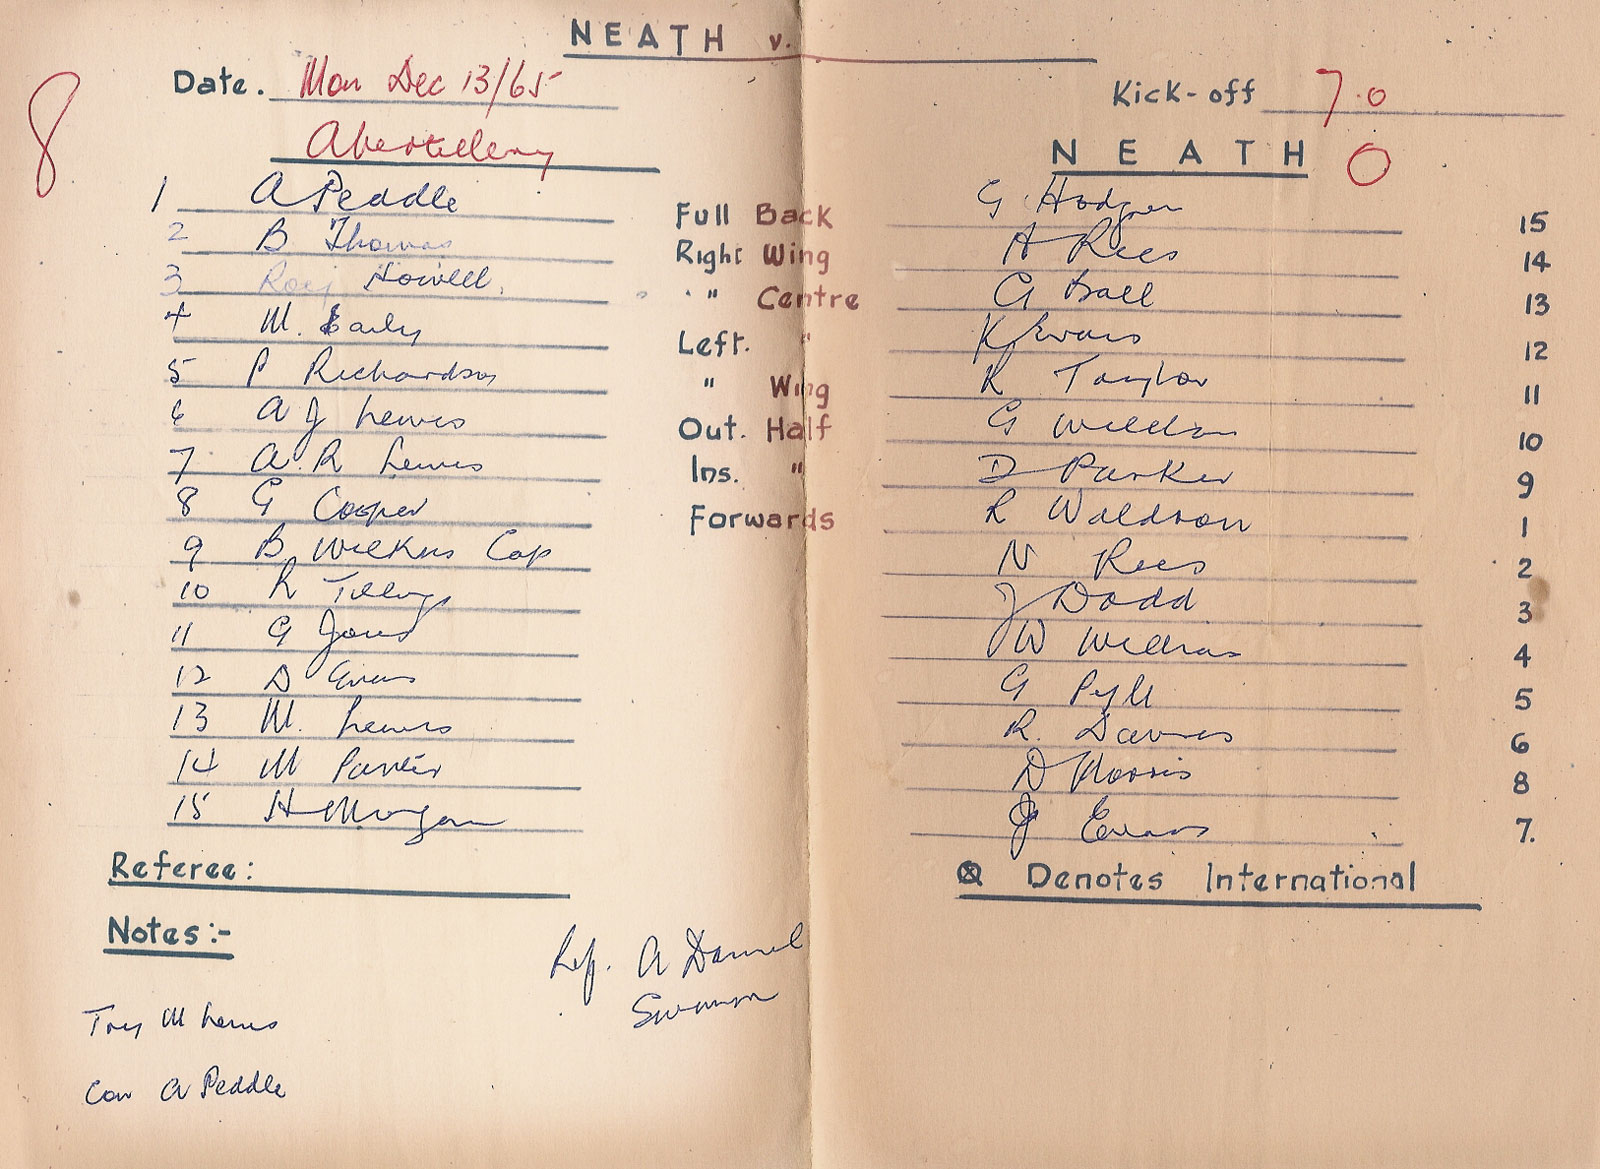 NEATH v.
Date. Mon Dec 13/65
Kick-off 7.0
8 Abertillery
NEATH 0
1 A Peddle Full Back G Hodges 15
2 B Thomas Right Wing A Rees 14
3 Roy Howell " Centre G Ball 13
4 M. Early Left. " K Evans 12
5 P Richardson " Wing R Taylor 11
6 A J Lewis Out. Half G 10
7 A. R Lewis Ins. " D Parker 9
8 G Cooper Forwards R Waldron 1
9 B Wilkins Cap N Rees 2
10 R J Dodd 3
11 G Jones W Williams 4
12 D Evans G Pyll 5
13 M. Lewis R. Davies 6
14 M D Morris 8
15 H Morgan J Evans 7.
Referee:
⊗ Denotes International
Notes:-
Ref. A Daniel
Swansea
Try M Lewis
Con A Peddle